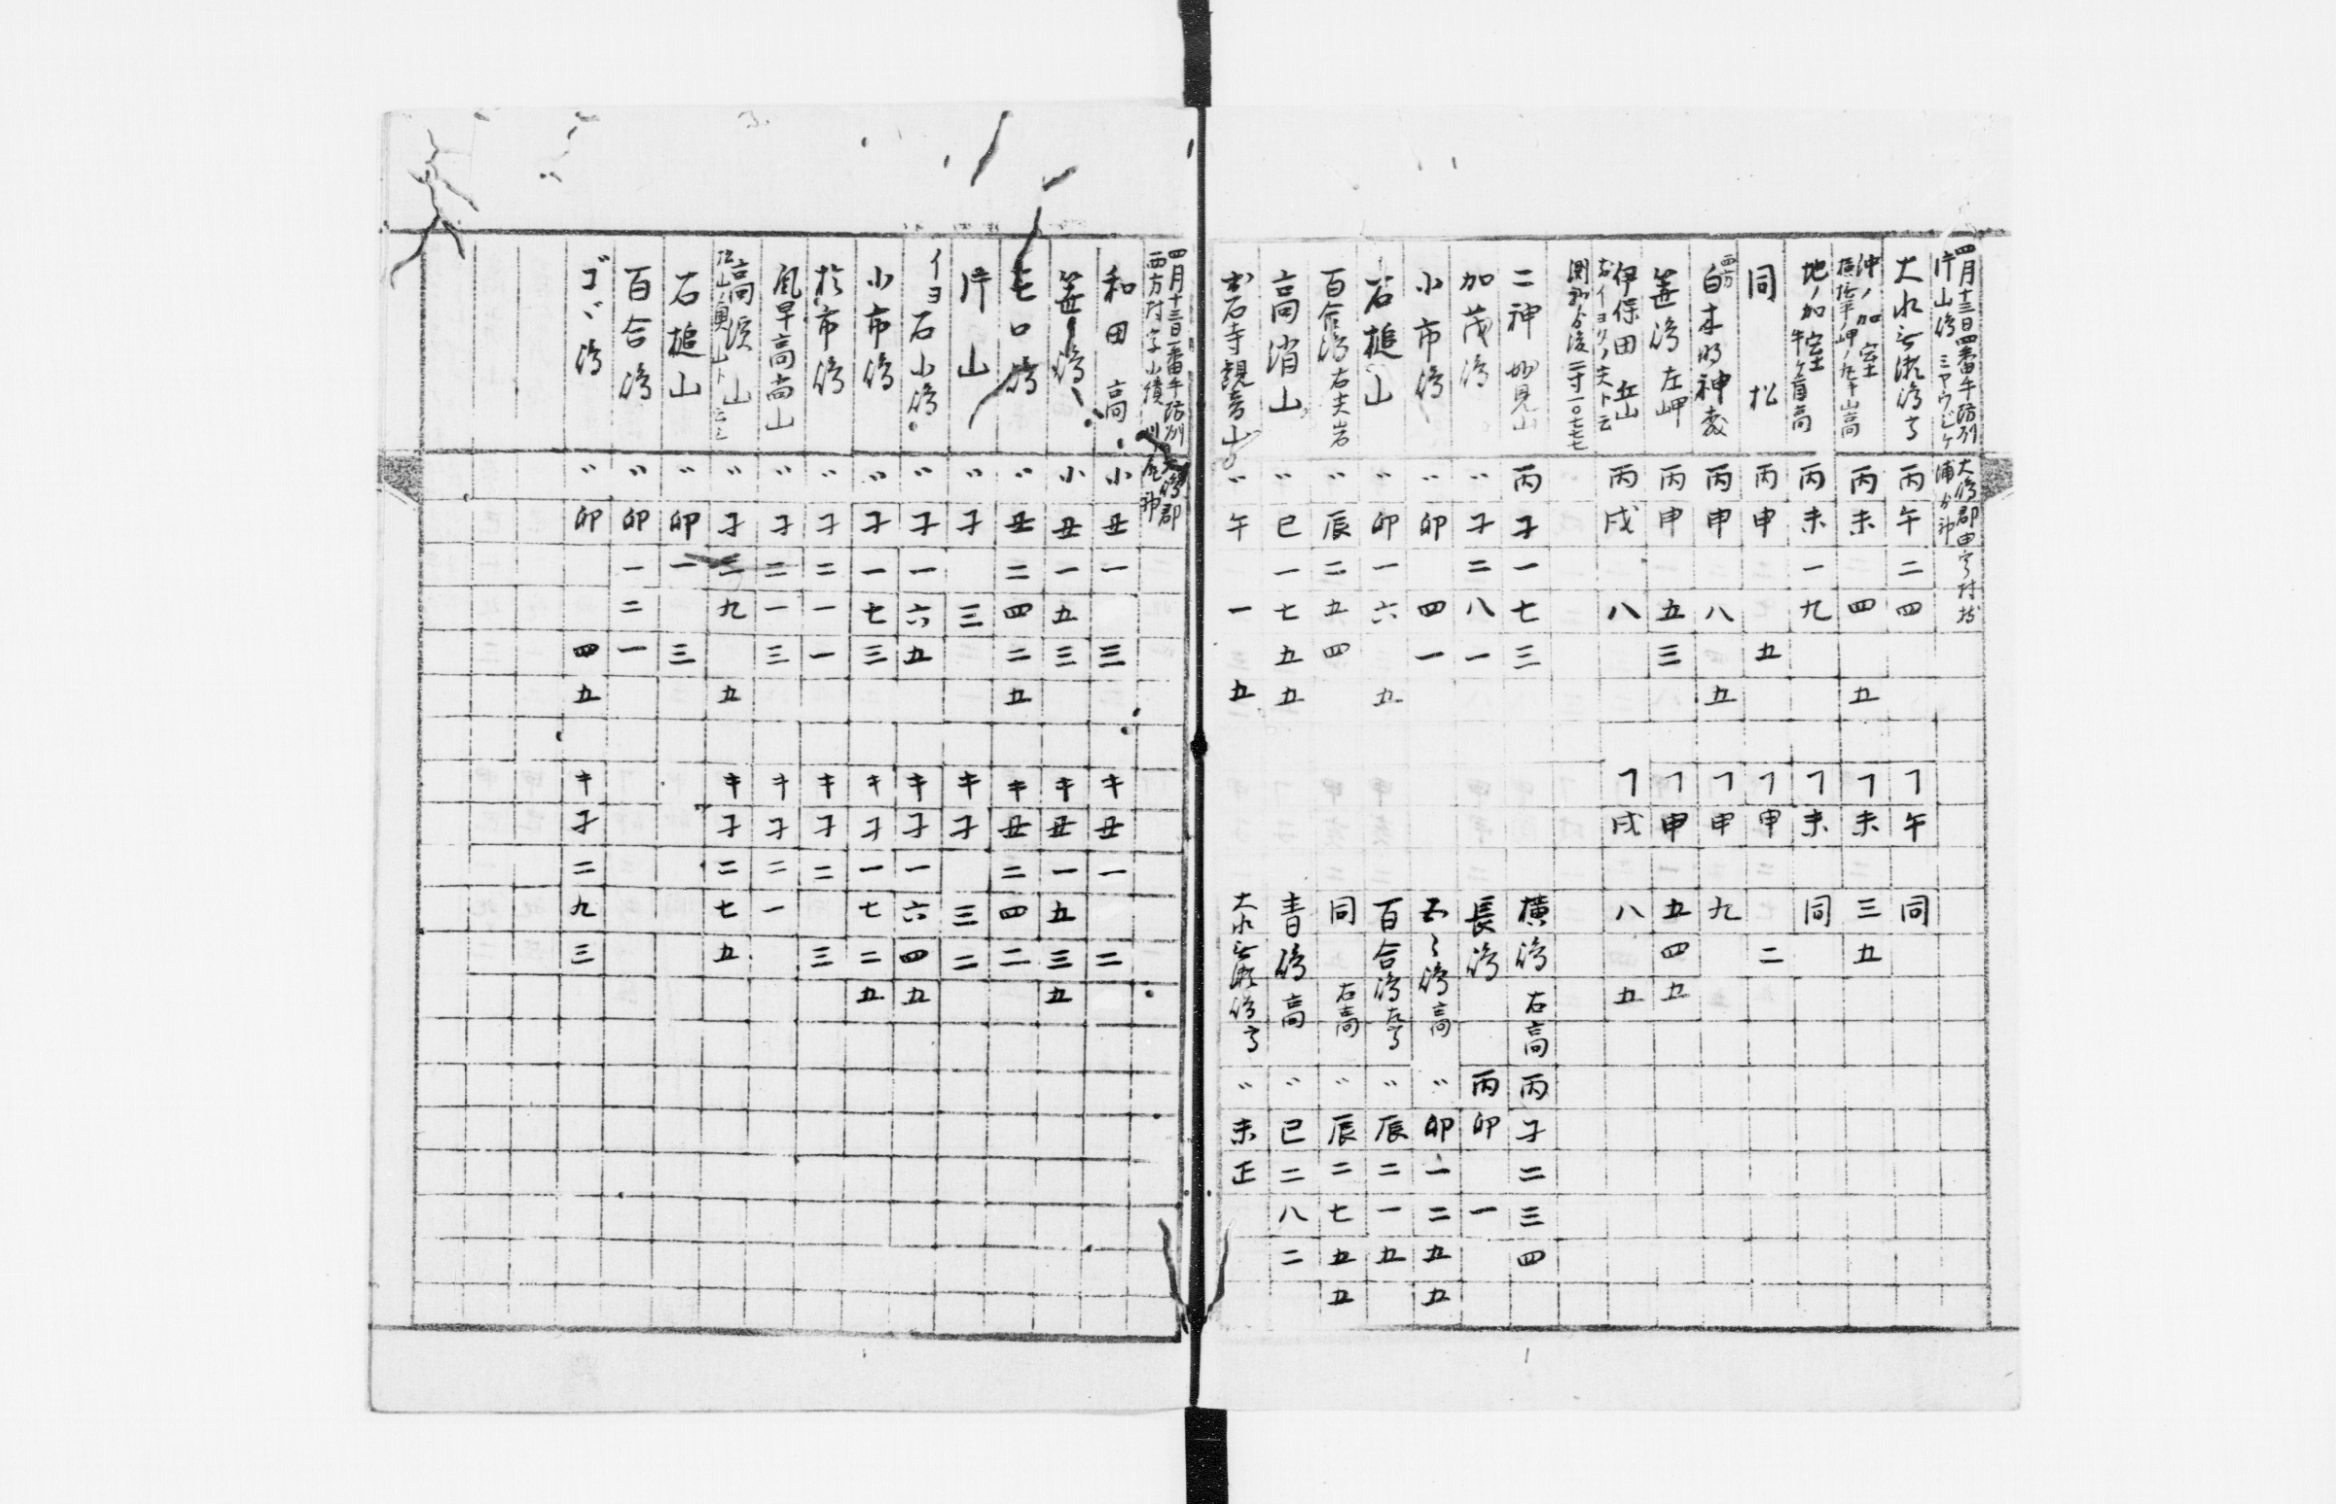 四月十三日四番手防州大島郡由宇村枝
片山島 ミヤウジケ浦分郡
大水無瀬島高 丙午二四 フ午 同
沖ノ加室 丙未 四 五 フ未 三五
地ノ加室 牛ケ首高 丙未一九 フ未 同
同 松 丙申 五 フ申 二
西方 白木明神森 丙申 八 五 フ申 九
笠島 左岬 丙申 五三 フ申 五四五
伊保田 丘山 丙戌 八 フ戌 八 五
二神 妙見山 丙子一七三 横島 右高 丙子二三四
加茂島 〃子二八一 長島 丙卯 一
小市島 〃卯 四一 五々島高 〃卯一二五五
石槌山 〃卯一六 五 百合島左高 〃辰二一五
百合島右夫岩 〃辰二五四 同 右高 〃辰二七五五
高消山 〃巳一七五五 青島高 〃巳二八二
岩石寺観音山 〃午 一 五 大水無瀬島高 〃未正
四月十三日一番手防州大島郡
西方村字小積
和田 高 小丑一 三 キ丑一 二
笠島 小丑一五三 キ丑一五三五
七口島 〃丑二四二五 キ丑二四二
片山 〃子 三 キ子 三二
イヨ石小島 〃子一六五 キ子一六四五
小市島 〃子一七三 キ子一七二五
於市島 〃子二一一 キ子二 三
風早高山 〃子二一三 キ子二一
高浜山 〃子二九 五 キ子二七五
石槌山 〃卯一 三
百合島 〃卯一二一
ゴヾ島 〃卯 四五 キ子二九三